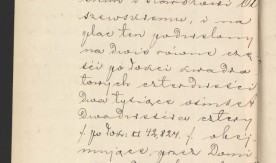 szewskiemu, i na
plac ten podzielony
na dwie równe czę-
ści po łokci kwadra
towych czterdzieści
dwa tysiące ośmset
dwadzieścia cztery
/ po łok. □ 42,824 / obej
mujące, przez Domi